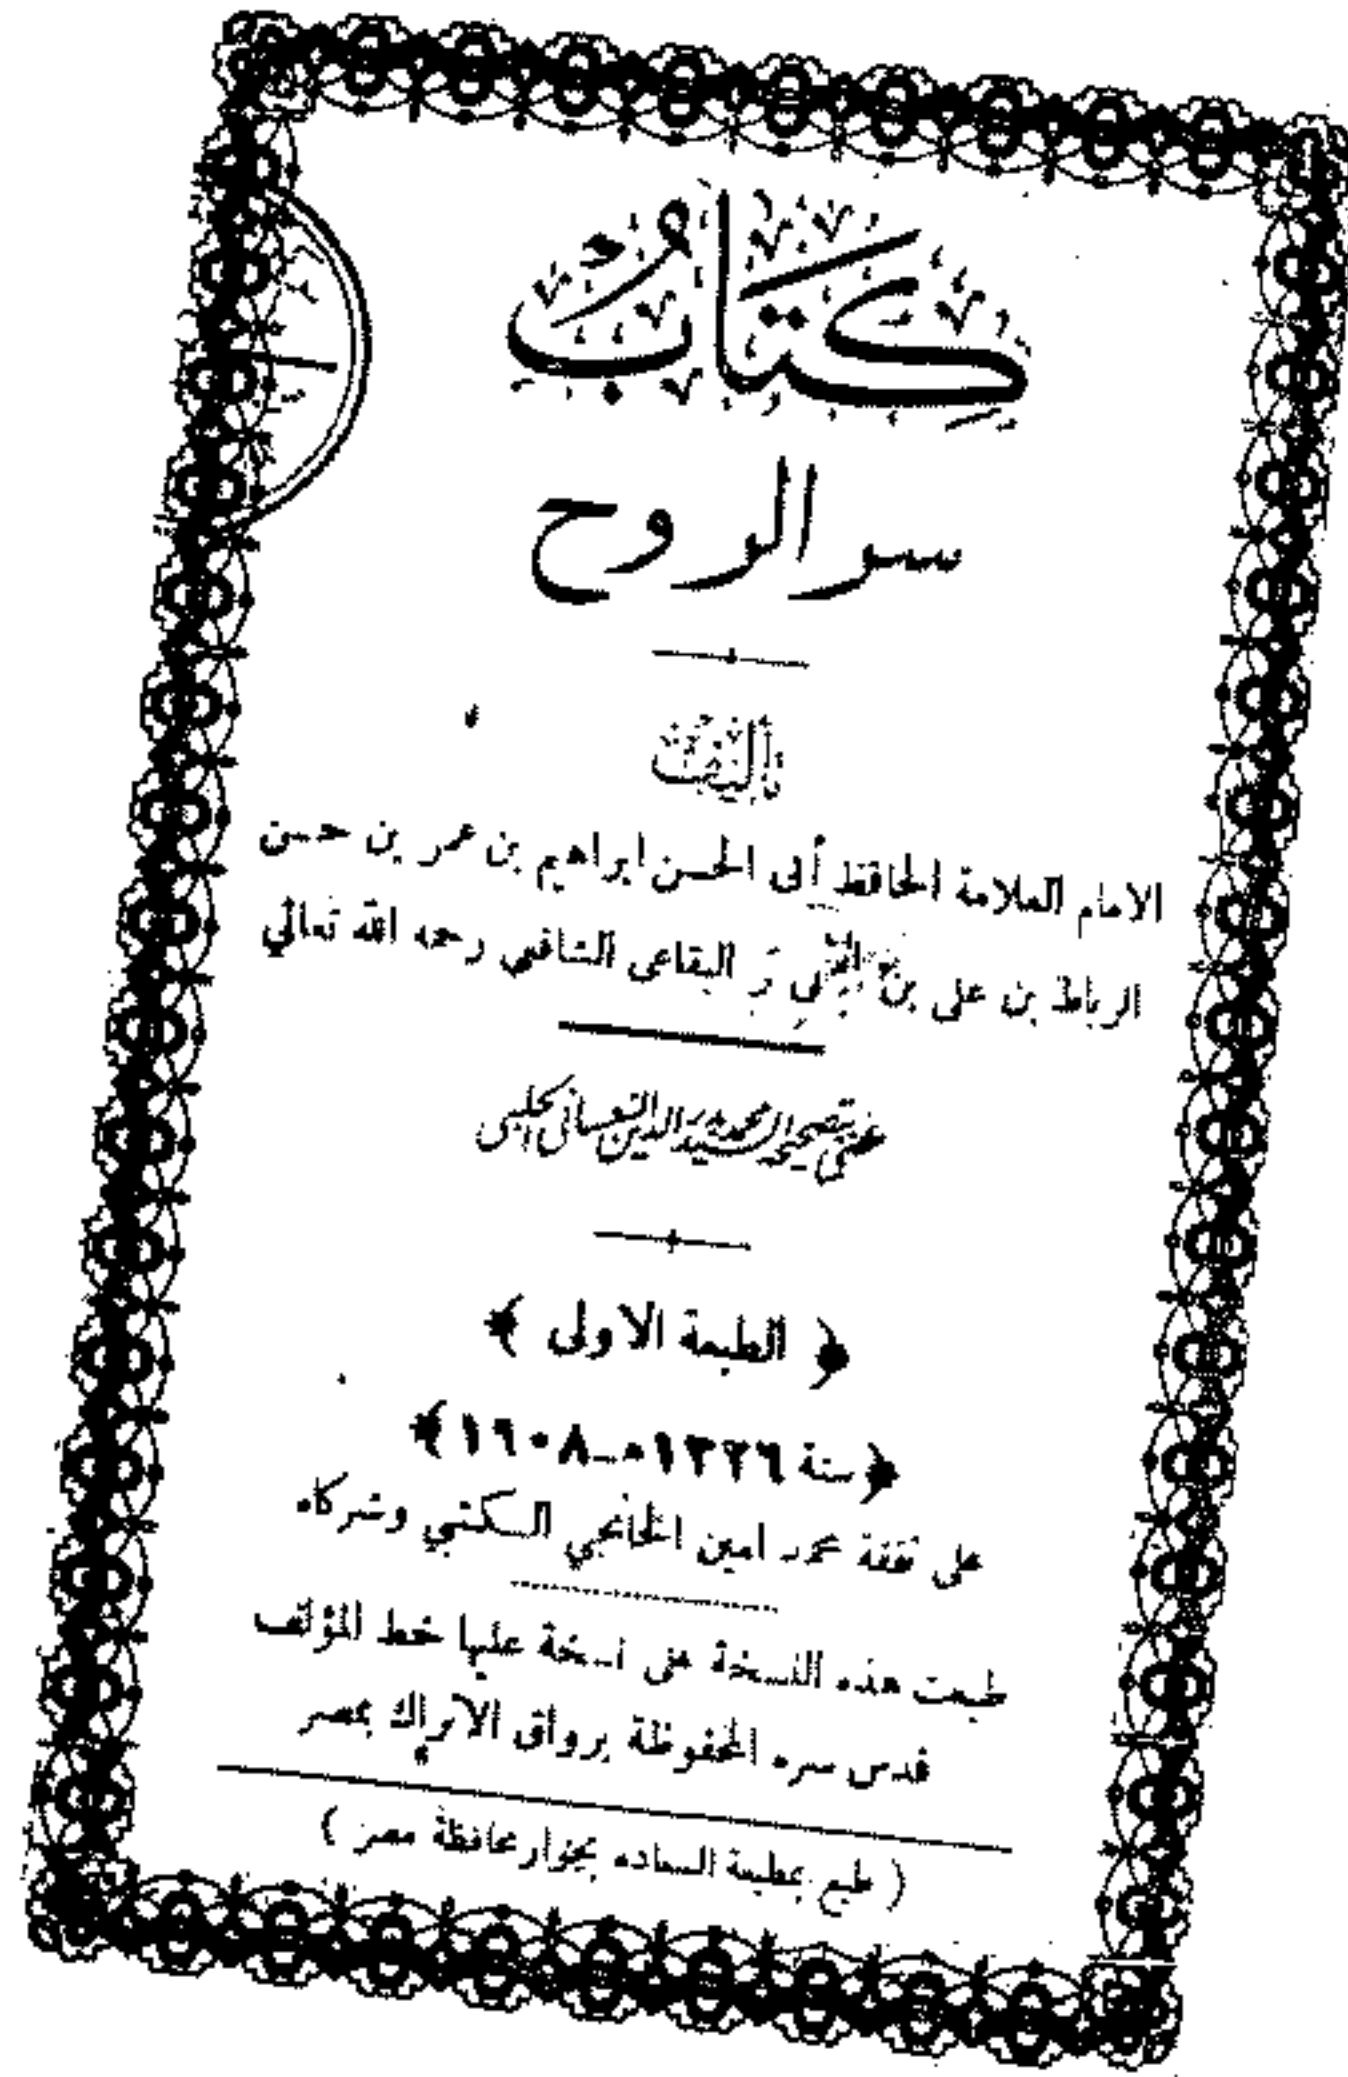 كِتَابُ
سر الروح
تأليف
الامام العلامة الحافظ أبى الحسن ابراهيم بن عمر بن حسن
الرباط بن على بن أبى بكر البقاعى الشافعي رحمه الله تعالي
عنى بتصحيحه السيد محمد بدر الدين النعسانى الحلبى
﴿ الطبعة الاولى ﴾
﴿ سنة ١٣٢٦ه‍ــ١٩٠٨ ﴾
على نفقة محمد امين الخانجي الكتبي وشركاه
طبعت هذه النسخة عن نسخة عليها خط المؤلف
قدس سره المحفوظة برواق الاتراك بمصر
( طبع بمطبعة السعاده بجوار محافظة مصر )